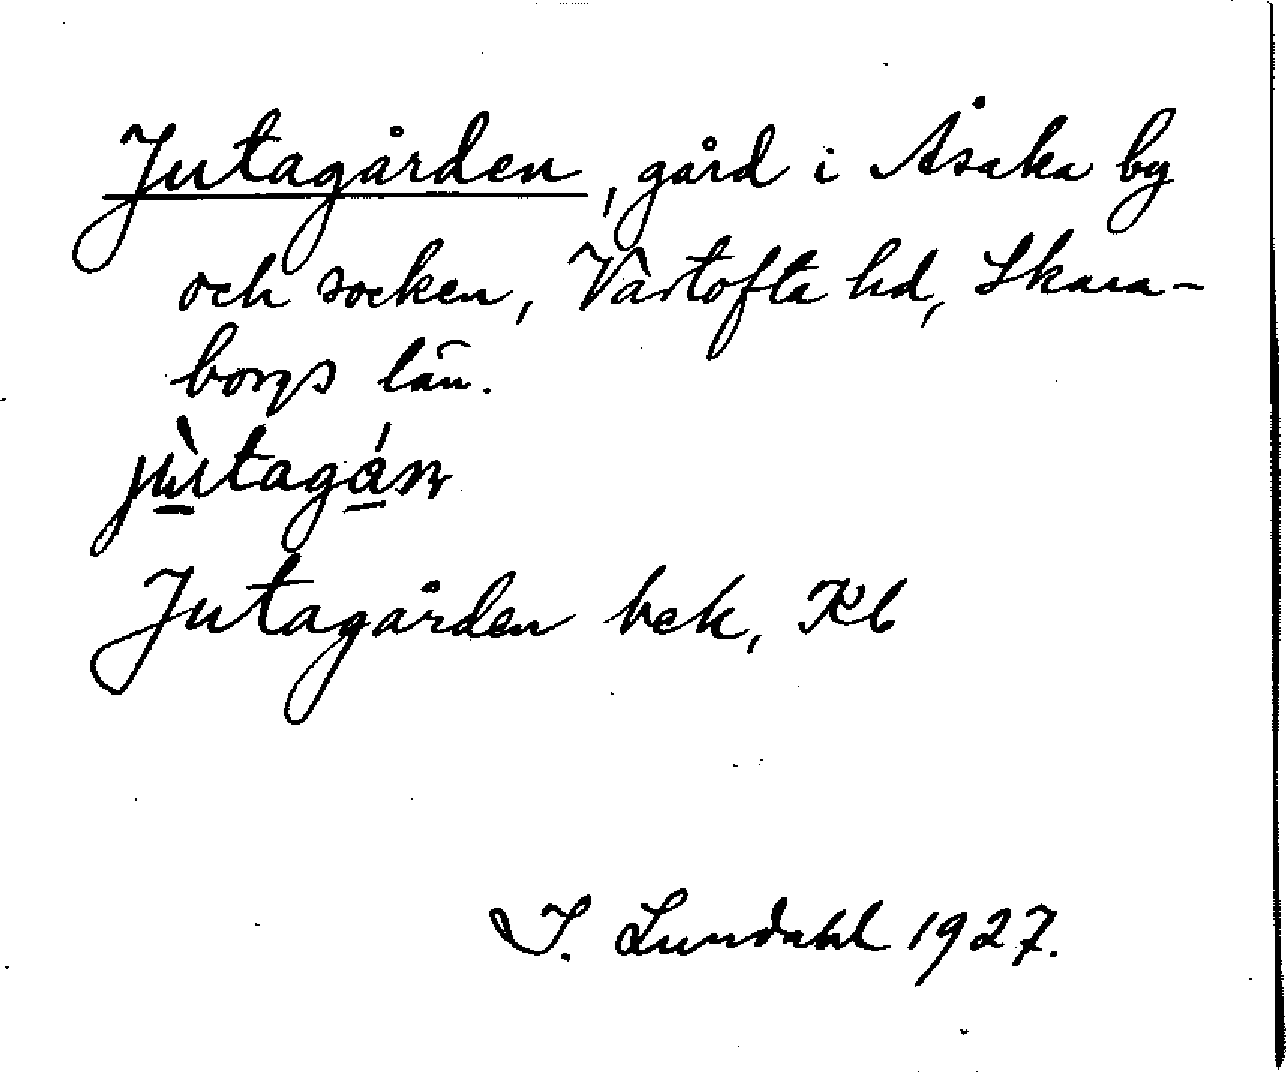 Jutagården, gård i Åsaka by
och socken, Vartofta hd, Skara-
borgs län.
Jutagården bek, Kb
I. Lundahl 1927.